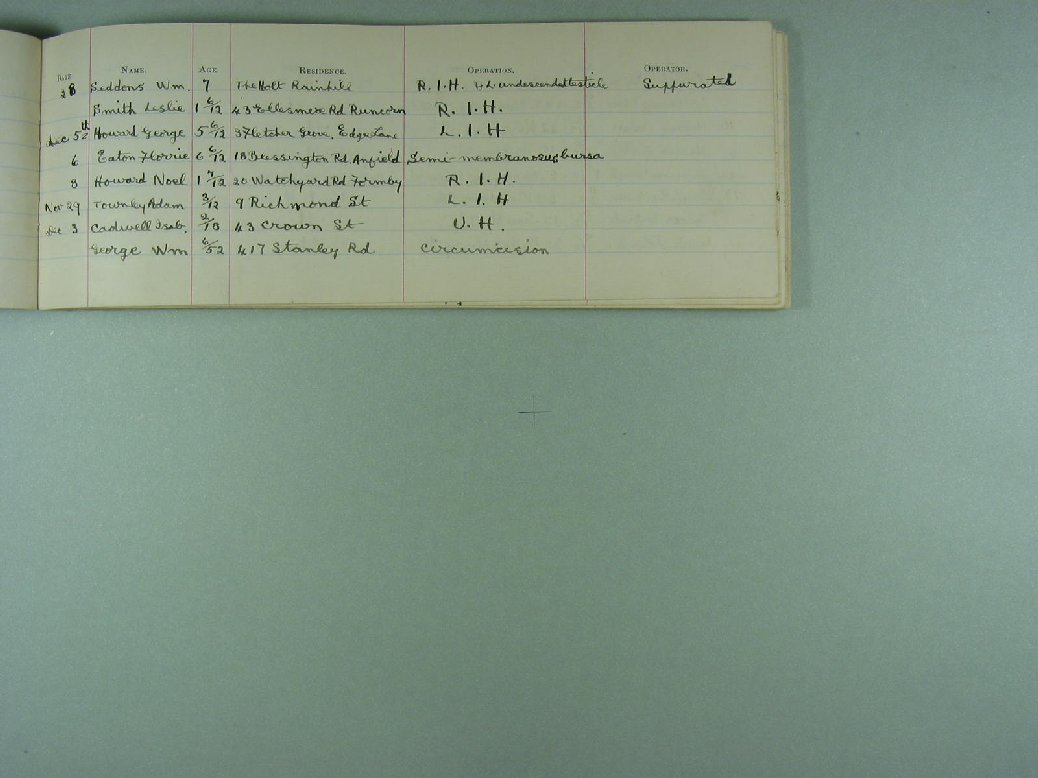 DATE NAME. AGE RESIDENCE. OPERATION. OPERATOR.
28 Seddons Wm. 7 The Holt Rainhill R.I.H. & L undescended testicle Suppurated
Smith Leslie 1 6/12 43 Ellesmere Rd Runcorn R.I.H.
Dec 5th Howard George 5 6/12 3 Fletcher Grove, Edge Lane L.I.H
6 Eaton Florrie 6 6/12 18 Blessington Rd Anfield Semi-membranosus bursa
3 Howard Noel 1 7/12 20 Watchyard Rd Formby R.I.H.
Nov 29 Townley Adam 3/12 9 Richmond St L.I.H
Dec 3 Cadwell Isab. 43 Crown St U.H.
George Wm 6/52 417 Stanley Rd circumcision